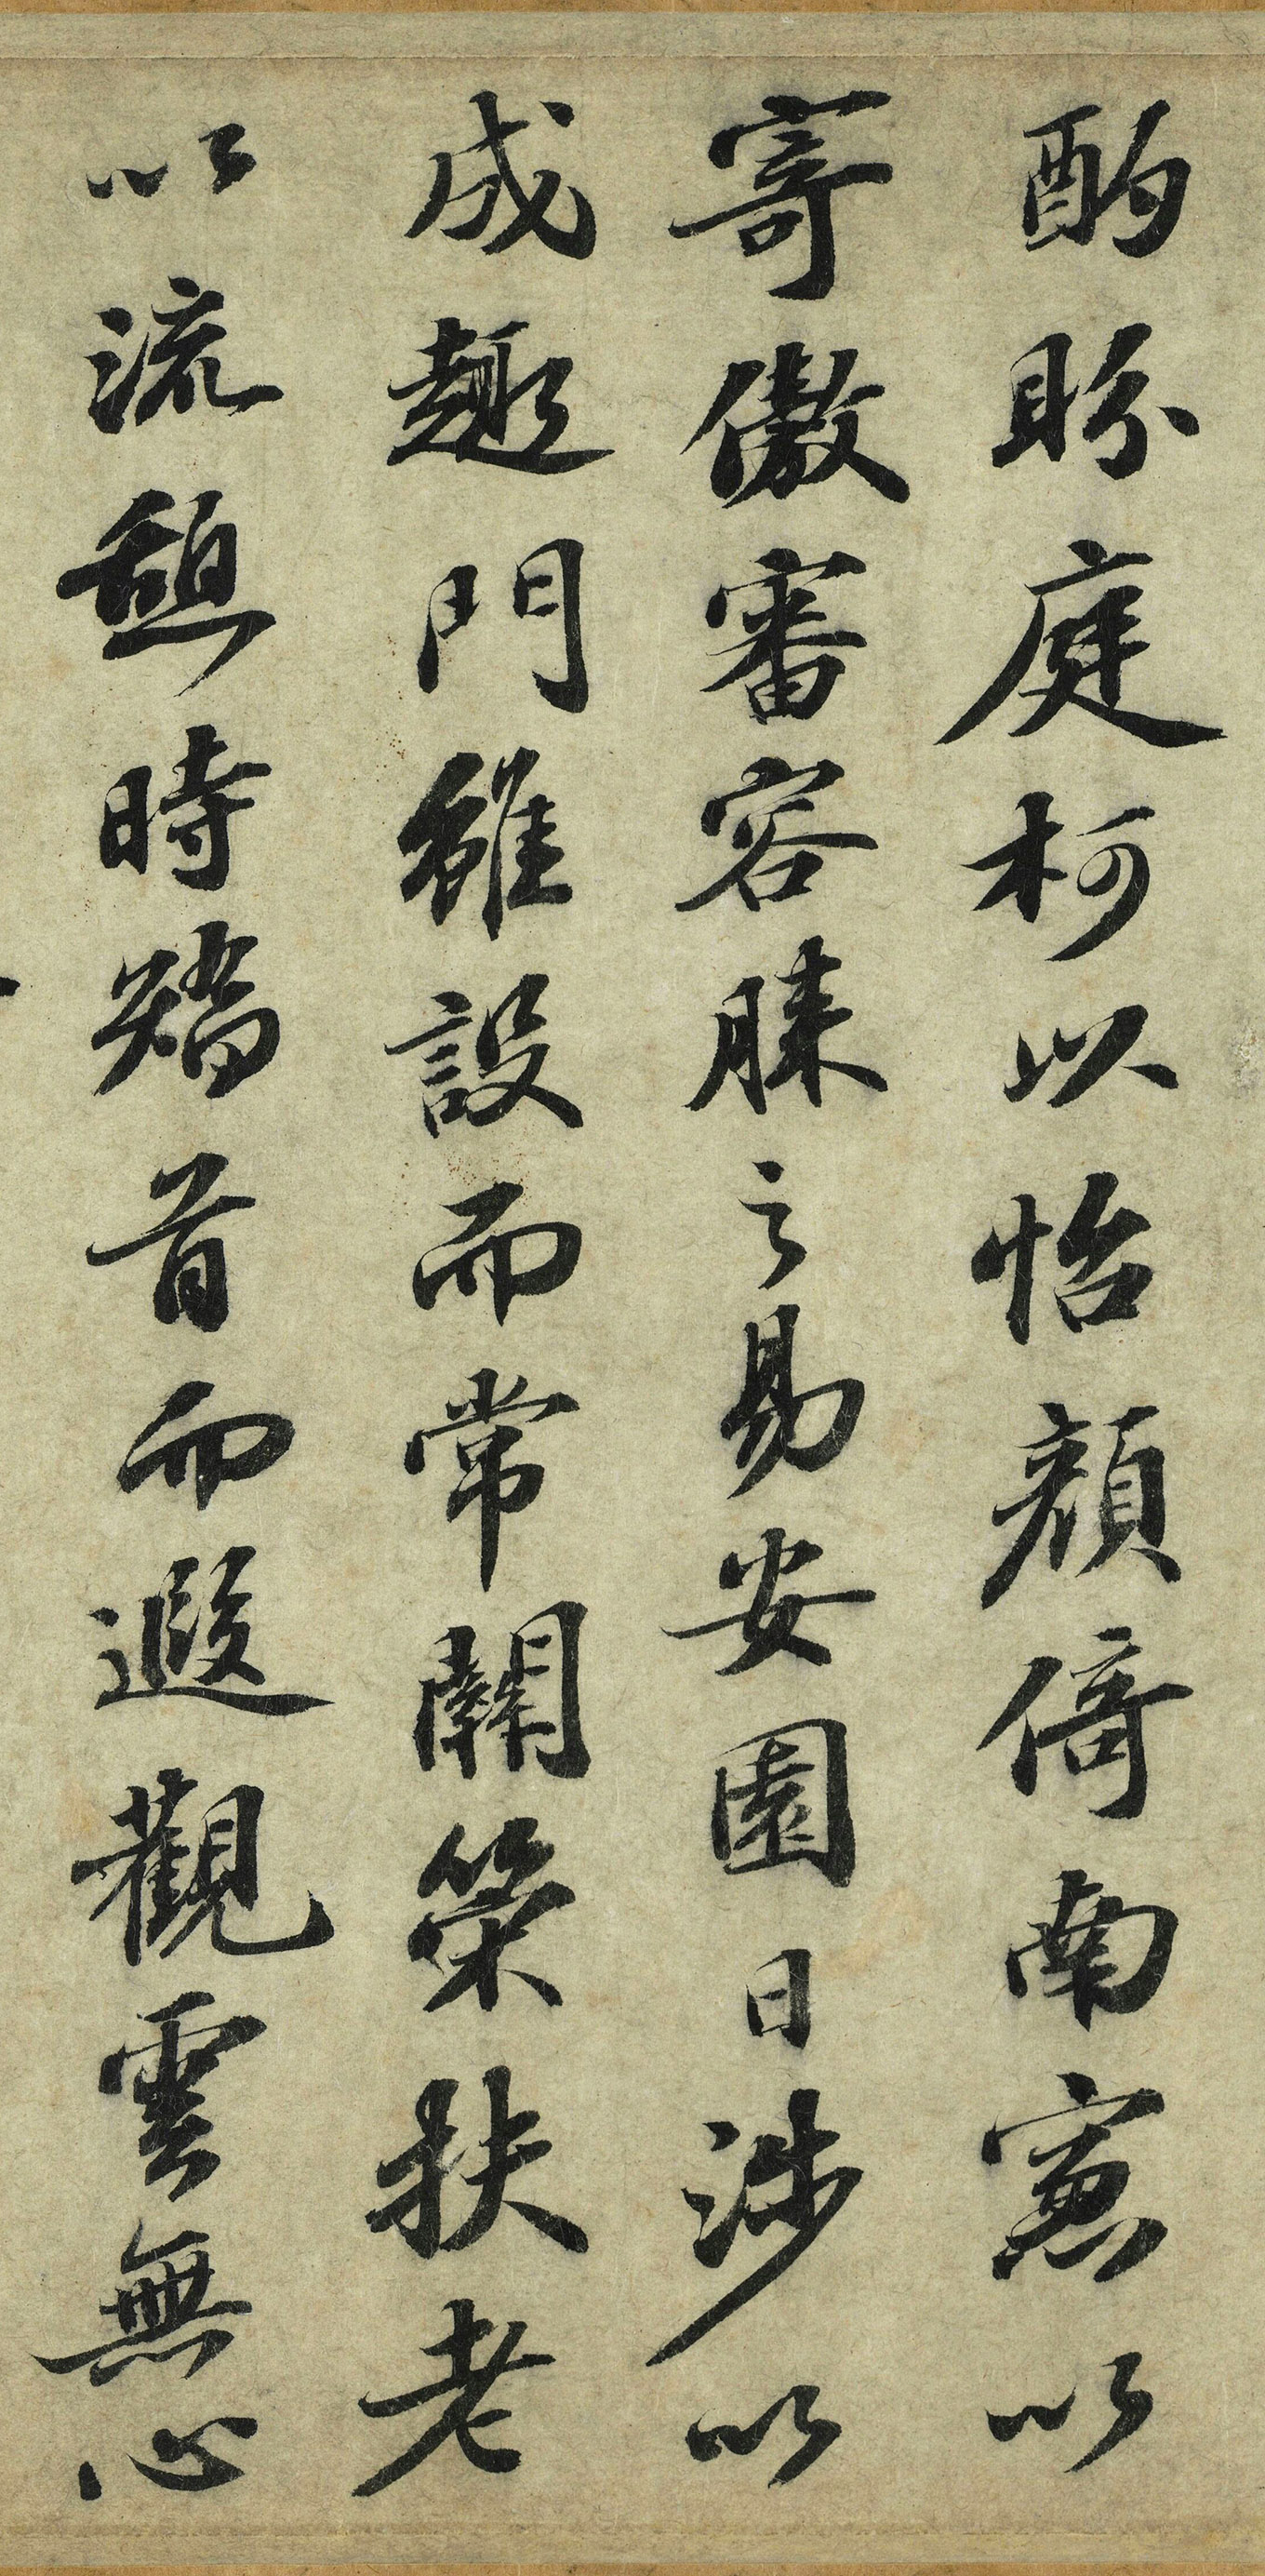 酌眄庭柯以怡顔倚南窻以
寄傲審容膝之易安園日涉以
成趣門雖設而常關策扶老
以流憩時矯首而遐觀雲無心